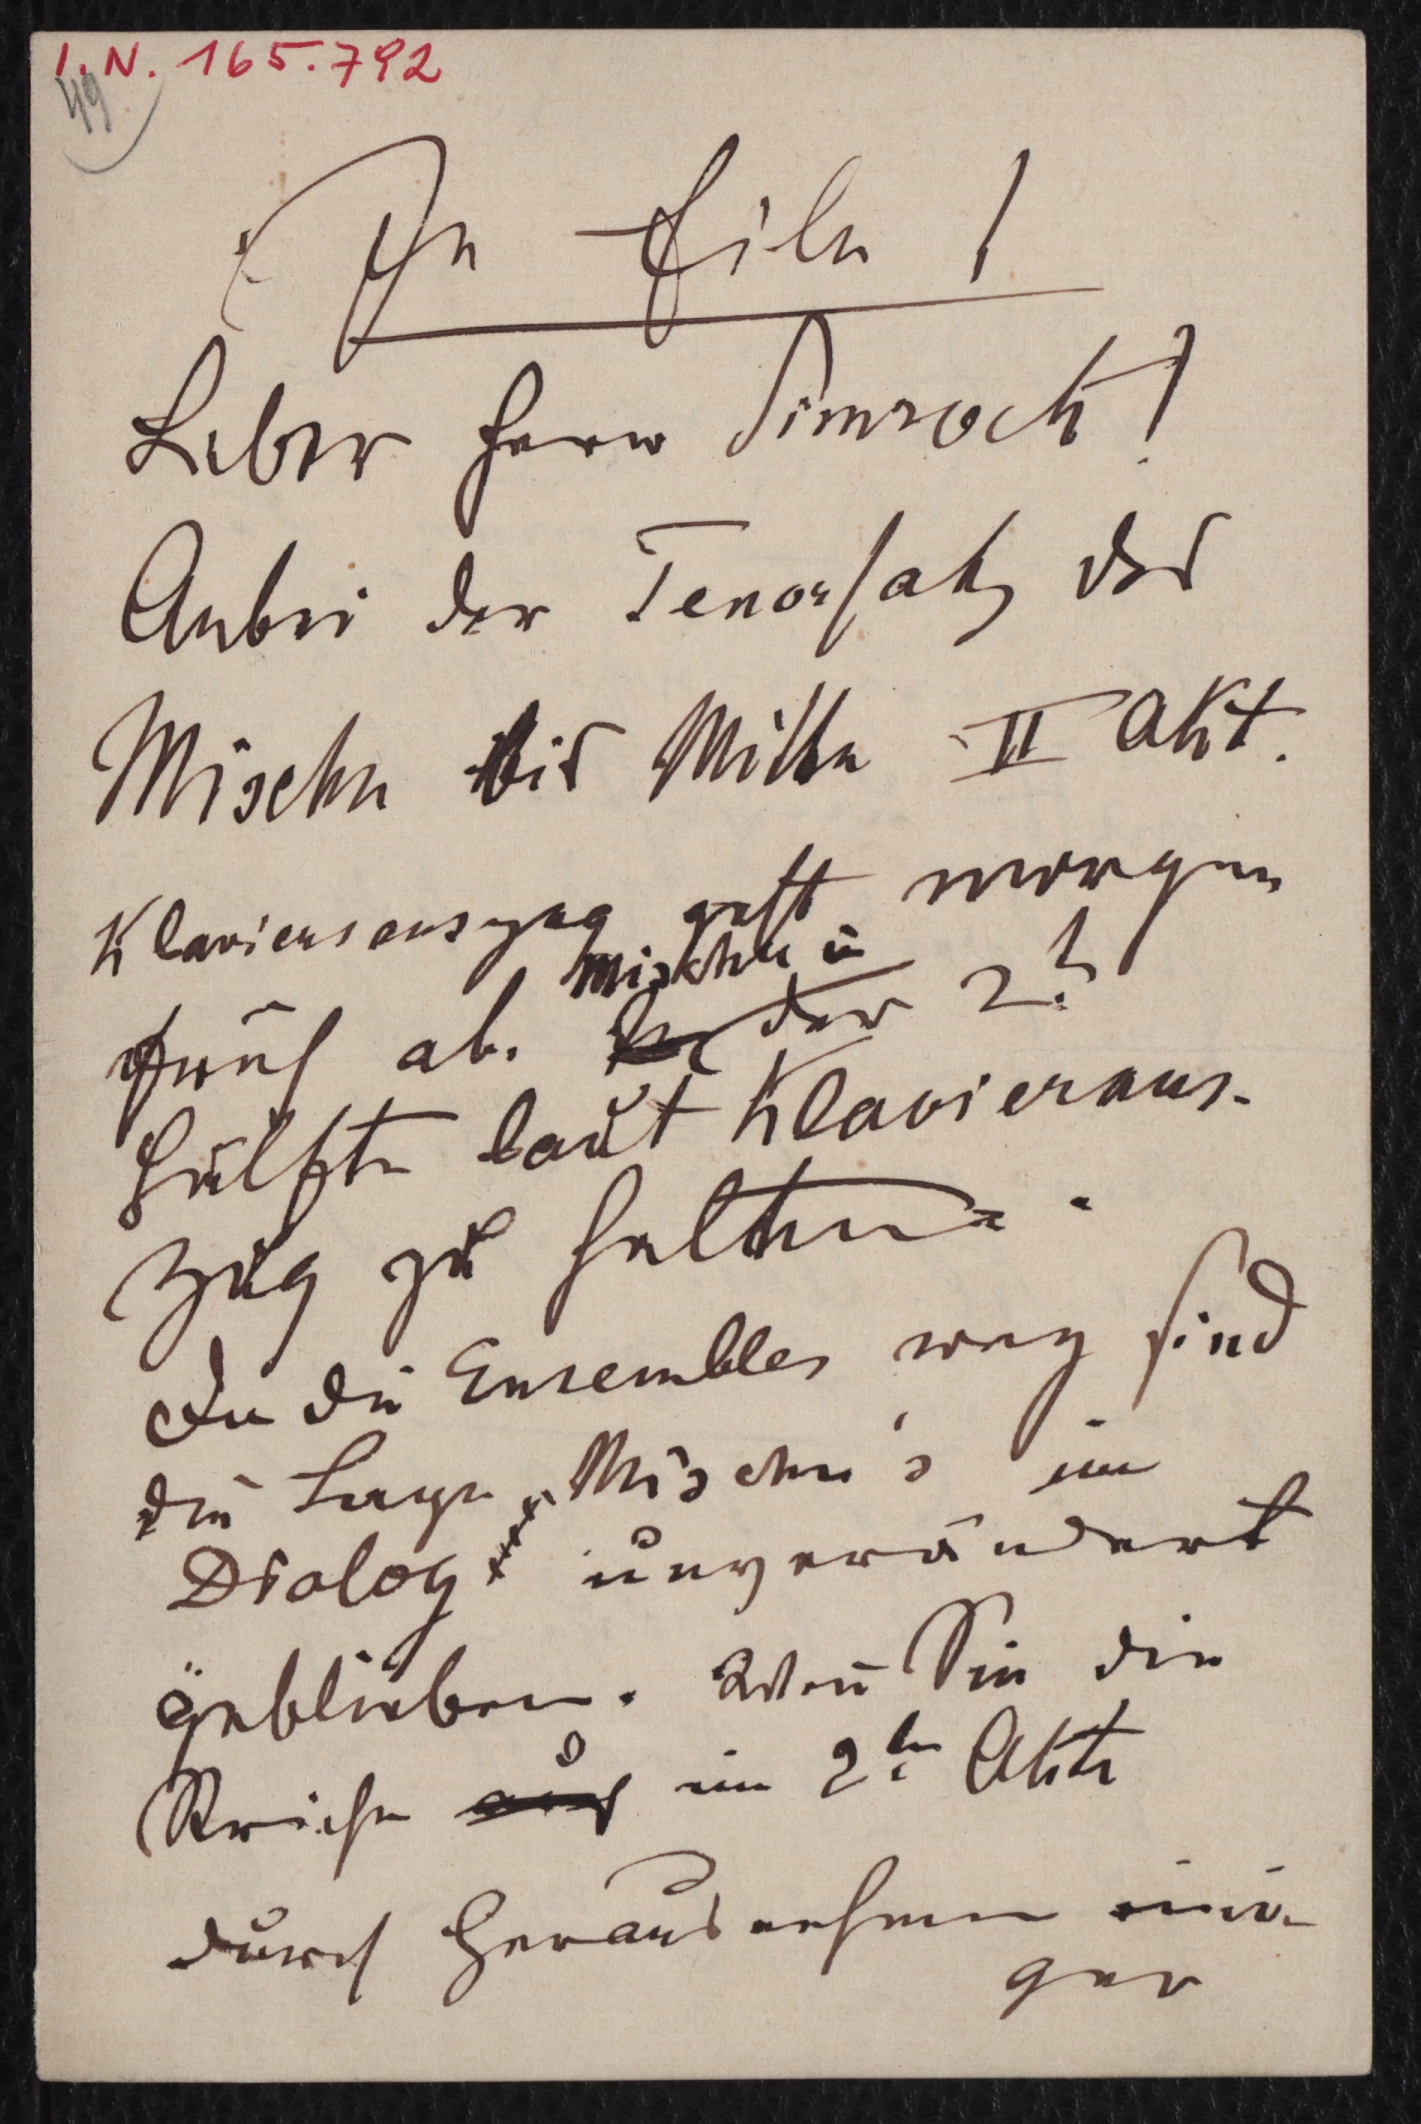 I. N. 165.792
49
In Eile!
Lieber Herr Simrock!
Anbei der Tenorsatz des
Mischu bis Mitte II Akt.
Klavierauszug geht morgen
früh ab. Mischu in
der 2.
Hälfte laut Klavieraus-
zug zu halten.
Da die Ensembles weg sind
die Lage Mischu's im
Dialog unverändert
geblieben. Wenn Sie die
Striche auch im 2ten Akte
durch Herausnehmen eini-
ger